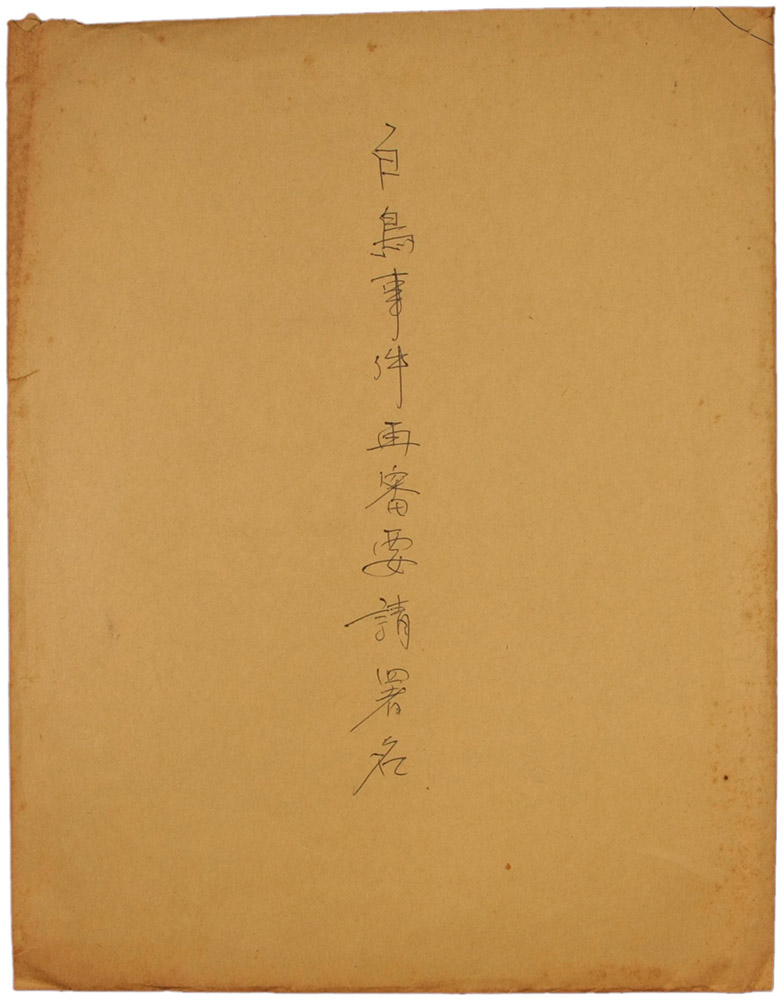 白鳥事件再審要請署名